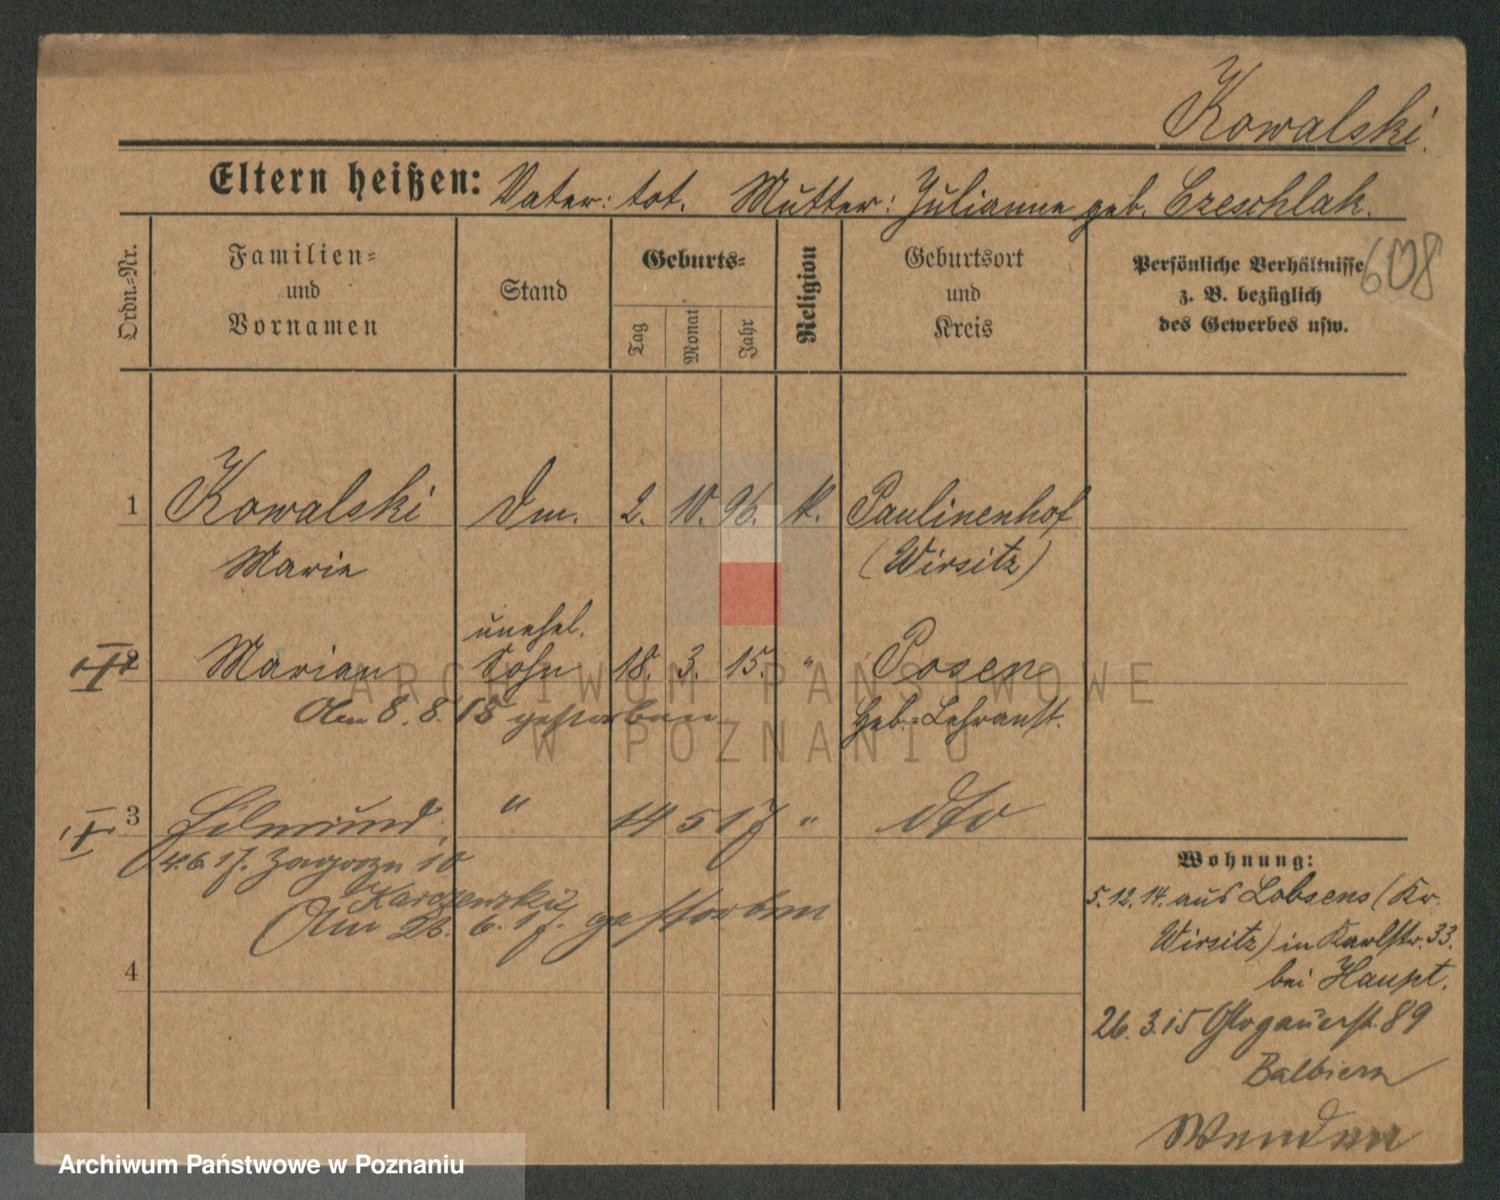 Kowalski.
Eltern heißen: Vater: tot. Mutter: Julianne geb. Czeschlak.
608
Ordn.-Nr.
Familien-
und
Vornamen
Stand
Geburts-
Tag
Monat
Jahr
Religion
Geburtsort
und
Kreis
Persönliche Verhältnisse
z. B. bezüglich
des Gewerbes usw.
1 Kowalski Dm. 2. 10. 96. k. Paulinenhof
Marie (Wirsitz)
unehel.
2 Marian Sohn 18. 3. 15. " Posen
Am 8. 8. 15 gestorben Geb.-Lehranst.
3 Edmund " 14 5 17 " dto
4.6.17. 10
Am 26. 6. 17. gestorben
4
Wohnung:
5.12.14. aus Lobsens (Kr.
Wirsitz) in Karlstr. 33.
bei Haupt.
26. 3. 15 Glogauerst. 89
ARCHIWUM PAŃSTWOWE
W POZNANIU
Archiwum Państwowe w Poznaniu